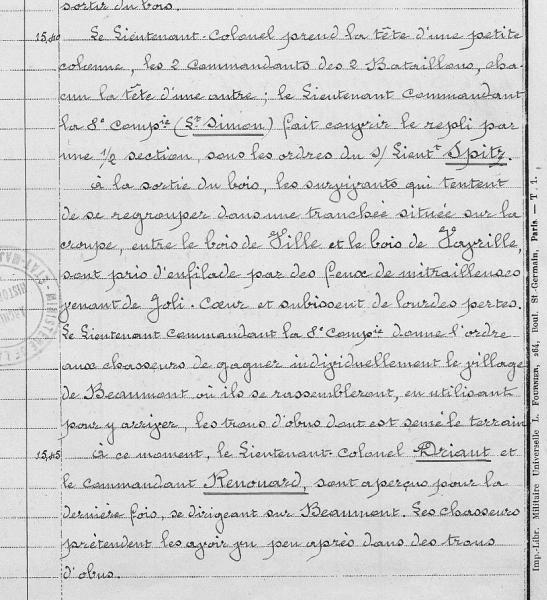 sortir du bois.
15,40 Le Lieutenant-Colonel prend la tête d'une petite
colonne, les 2 Commandants des 2 Bataillons, cha-
cun la tête d'une autre; le Lieutenant Commandant
la 8e Compie (Lt Simon) fait couvrir le repli par
une 1/2 section, sous les ordres du s/Lieutt Spitz.
à la sortie du bois, les survivants qui tentent
de se regrouper dans une tranchée située sur la
croupe, entre le bois de Ville et le bois de Vavrille,
sont pris d'enfilade par des feux de mitrailleuses
venant de Joli-Cœur et subissent de lourdes pertes.
Le Lieutenant Commandant la 8e Compie donne l'ordre
aux chasseurs de gagner individuellement le village
de Beaumont où ils se rassembleront, en utilisant
pour y arriver, les trous d'obus dont est semé le terrain
15,45 à ce moment, le Lieutenant-Colonel Driant et
le commandant Renouard, sont aperçus pour la
dernière fois, se dirigeant sur Beaumont. Les chasseurs
prétendent les avoir vu peu après dans des trous
d'obus.
Imp.-Libr. Militaire Universelle L. Fournier, 264, Boul. St-Germain, Paris — T. 1.